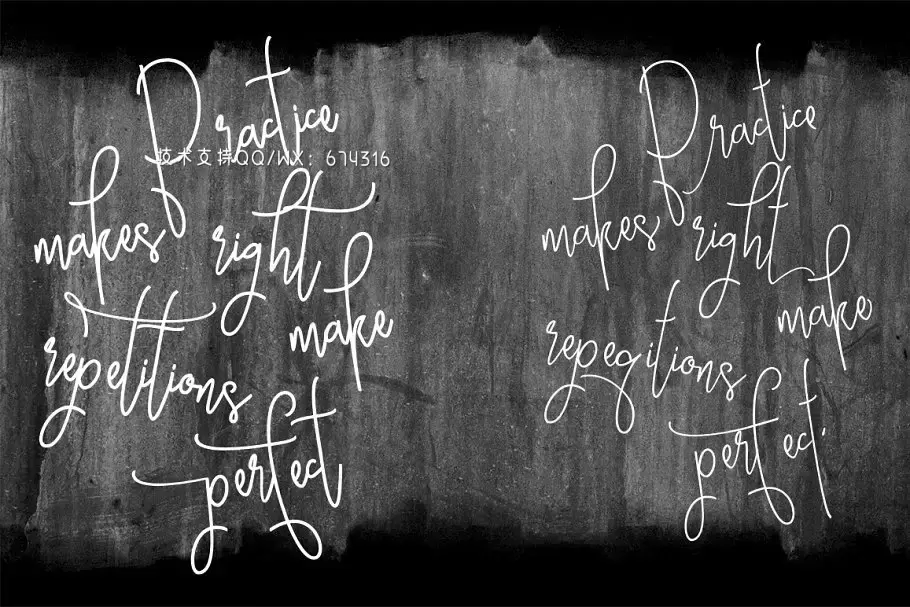 Practice
技术支持QQ/WX：674316
makes right
repetitions make
perfect
Practice
makes right
make
perfect